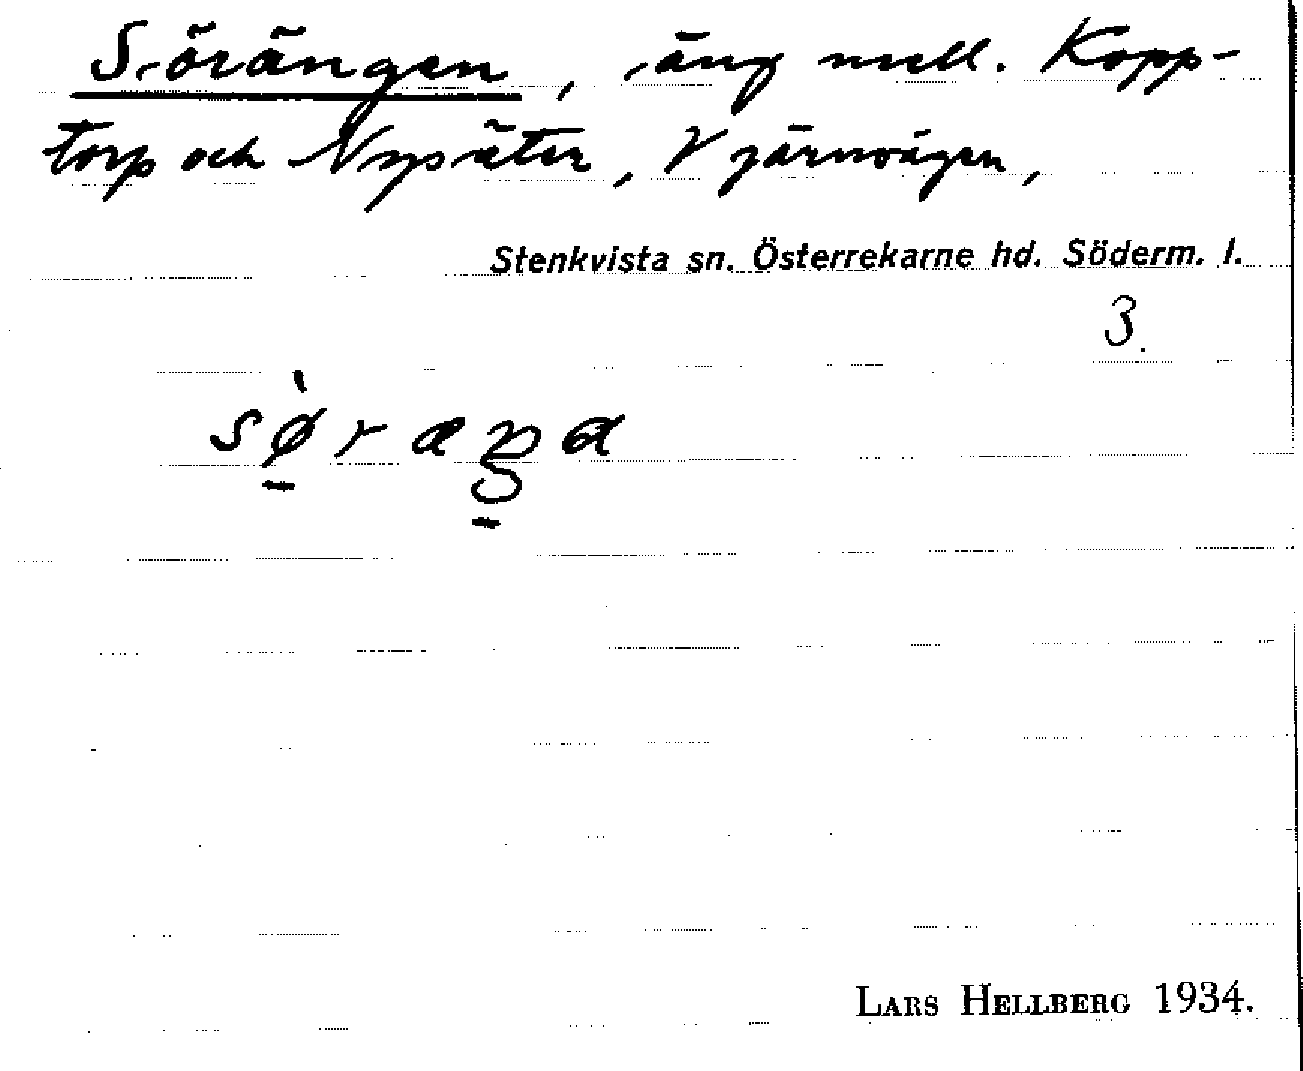 Sörängen, äng mell. Kopp-
torp och Nysäter, V järnvägen,
Stenkvista sn. Österrekarne hd. Söderm. l.
3.
LARS HELLBERG 1934.